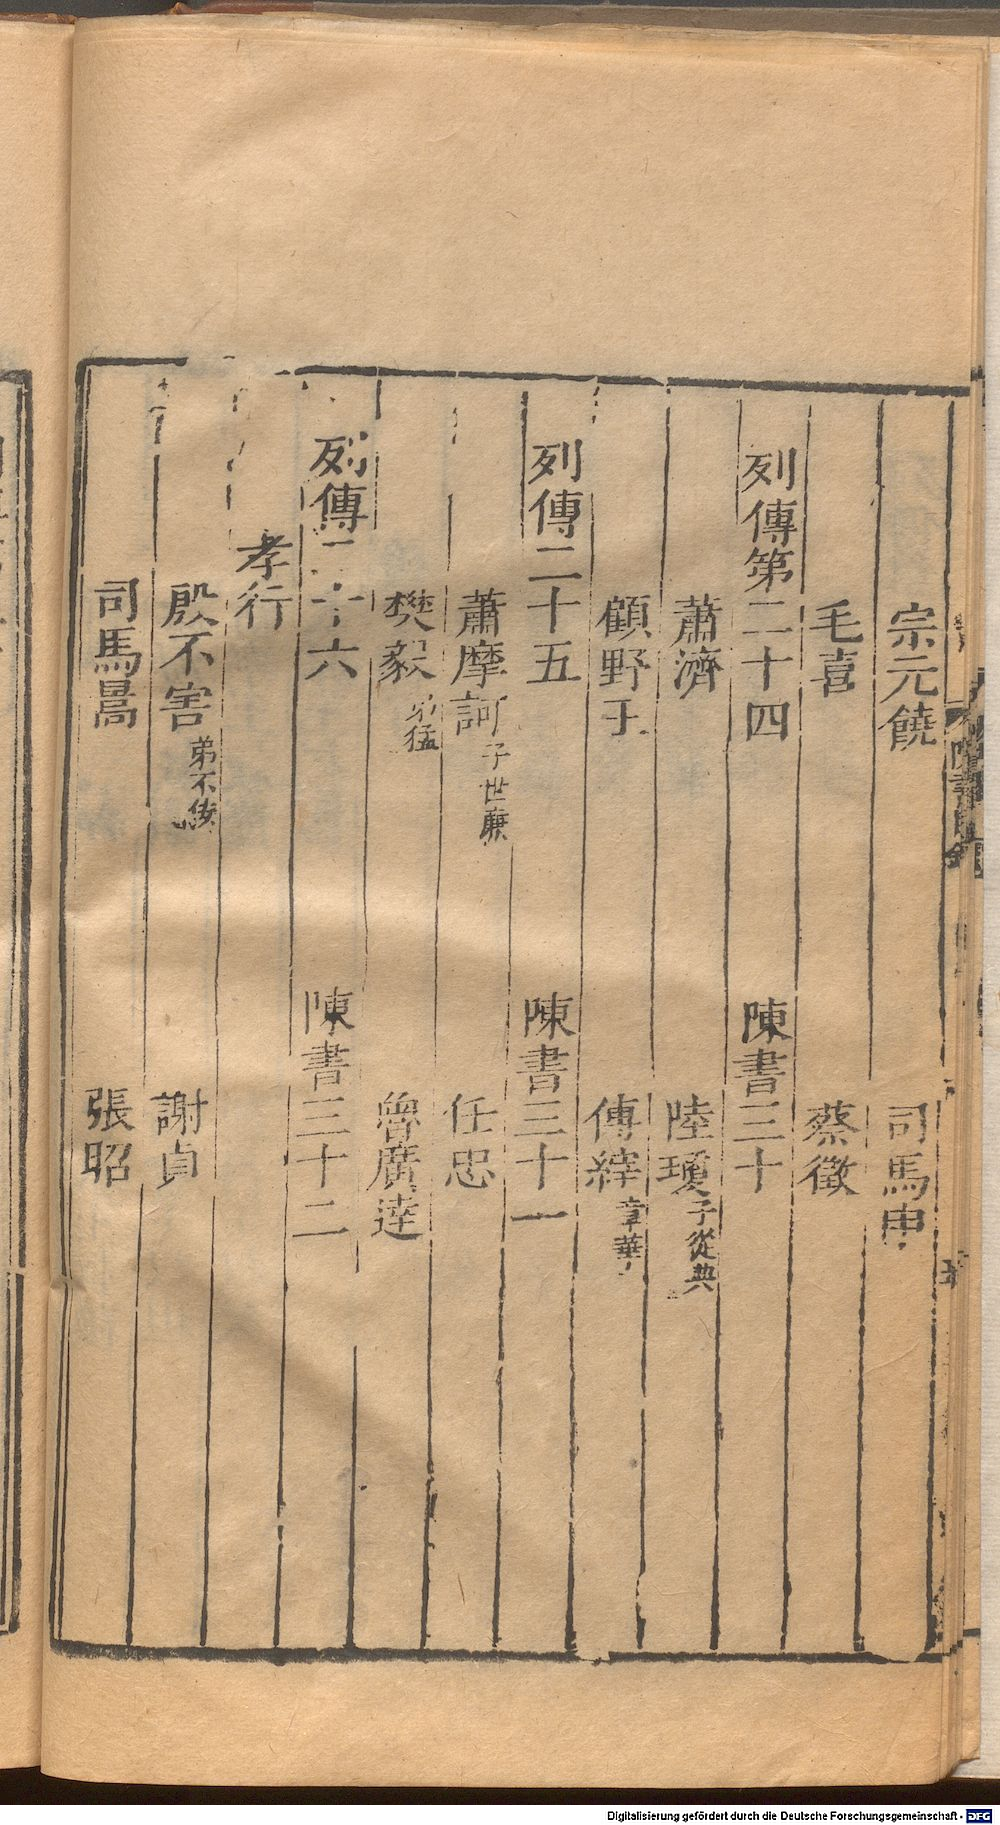 宗元饒 司馬申
毛喜 蔡徵
列傳第二十四 陳書三十
蕭濟 陸瓊子從典
顧野王 傅縡章華
列傳二十五 陳書三十一
蕭摩訶子世廉 任忠
樊毅弟猛 魯廣達
列傳二十六 陳書三十二
孝行
殷不害弟不佞 謝貞
司馬暠 張昭
Digitalisierung gefördert durch die Deutsche Forschungsgemeinschaft - DFG